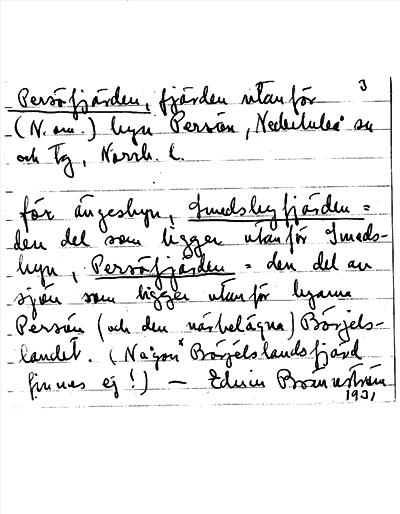 3
Persöfjärden, fjärden utanför
(N. om.) byn Persön, Nederluleå sn
och tg, Norrb. l.
för ängesbyn, Smedsbyfjärden =
den del som ligger utanför Smeds-
byn, Persöfjärden = den del av
sjön som ligger utanför byarna
Persön (och den närbelägna) Börjels-
landet. (Någon Börjelslandsfjärd
finnes ej!) — Edvin Brännström
1931